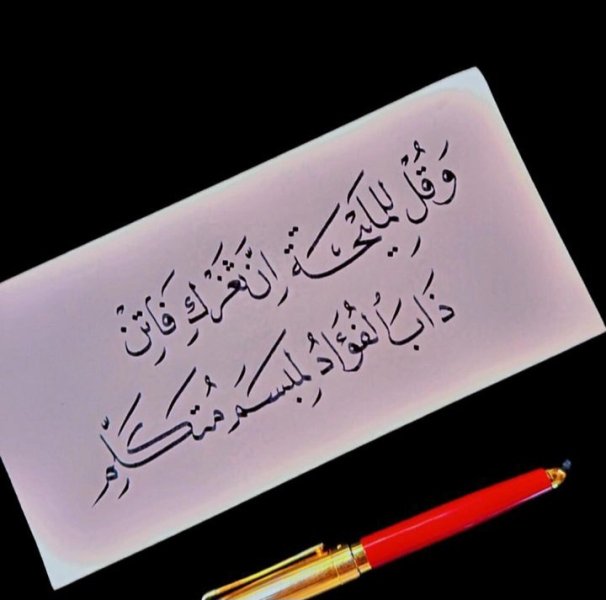 وَقُلِ لِلمَلِيْحَةِ إنَّ ثَغْرَكِ فَاتِنْ
ذَابَ الْفُؤَادُ لِمَبْسَمٍ مُتَكَلِّمِ